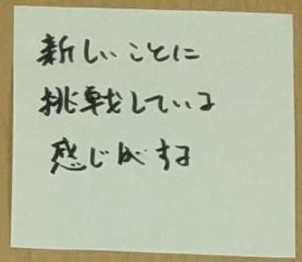 新しいことに
挑戦している
感じがする